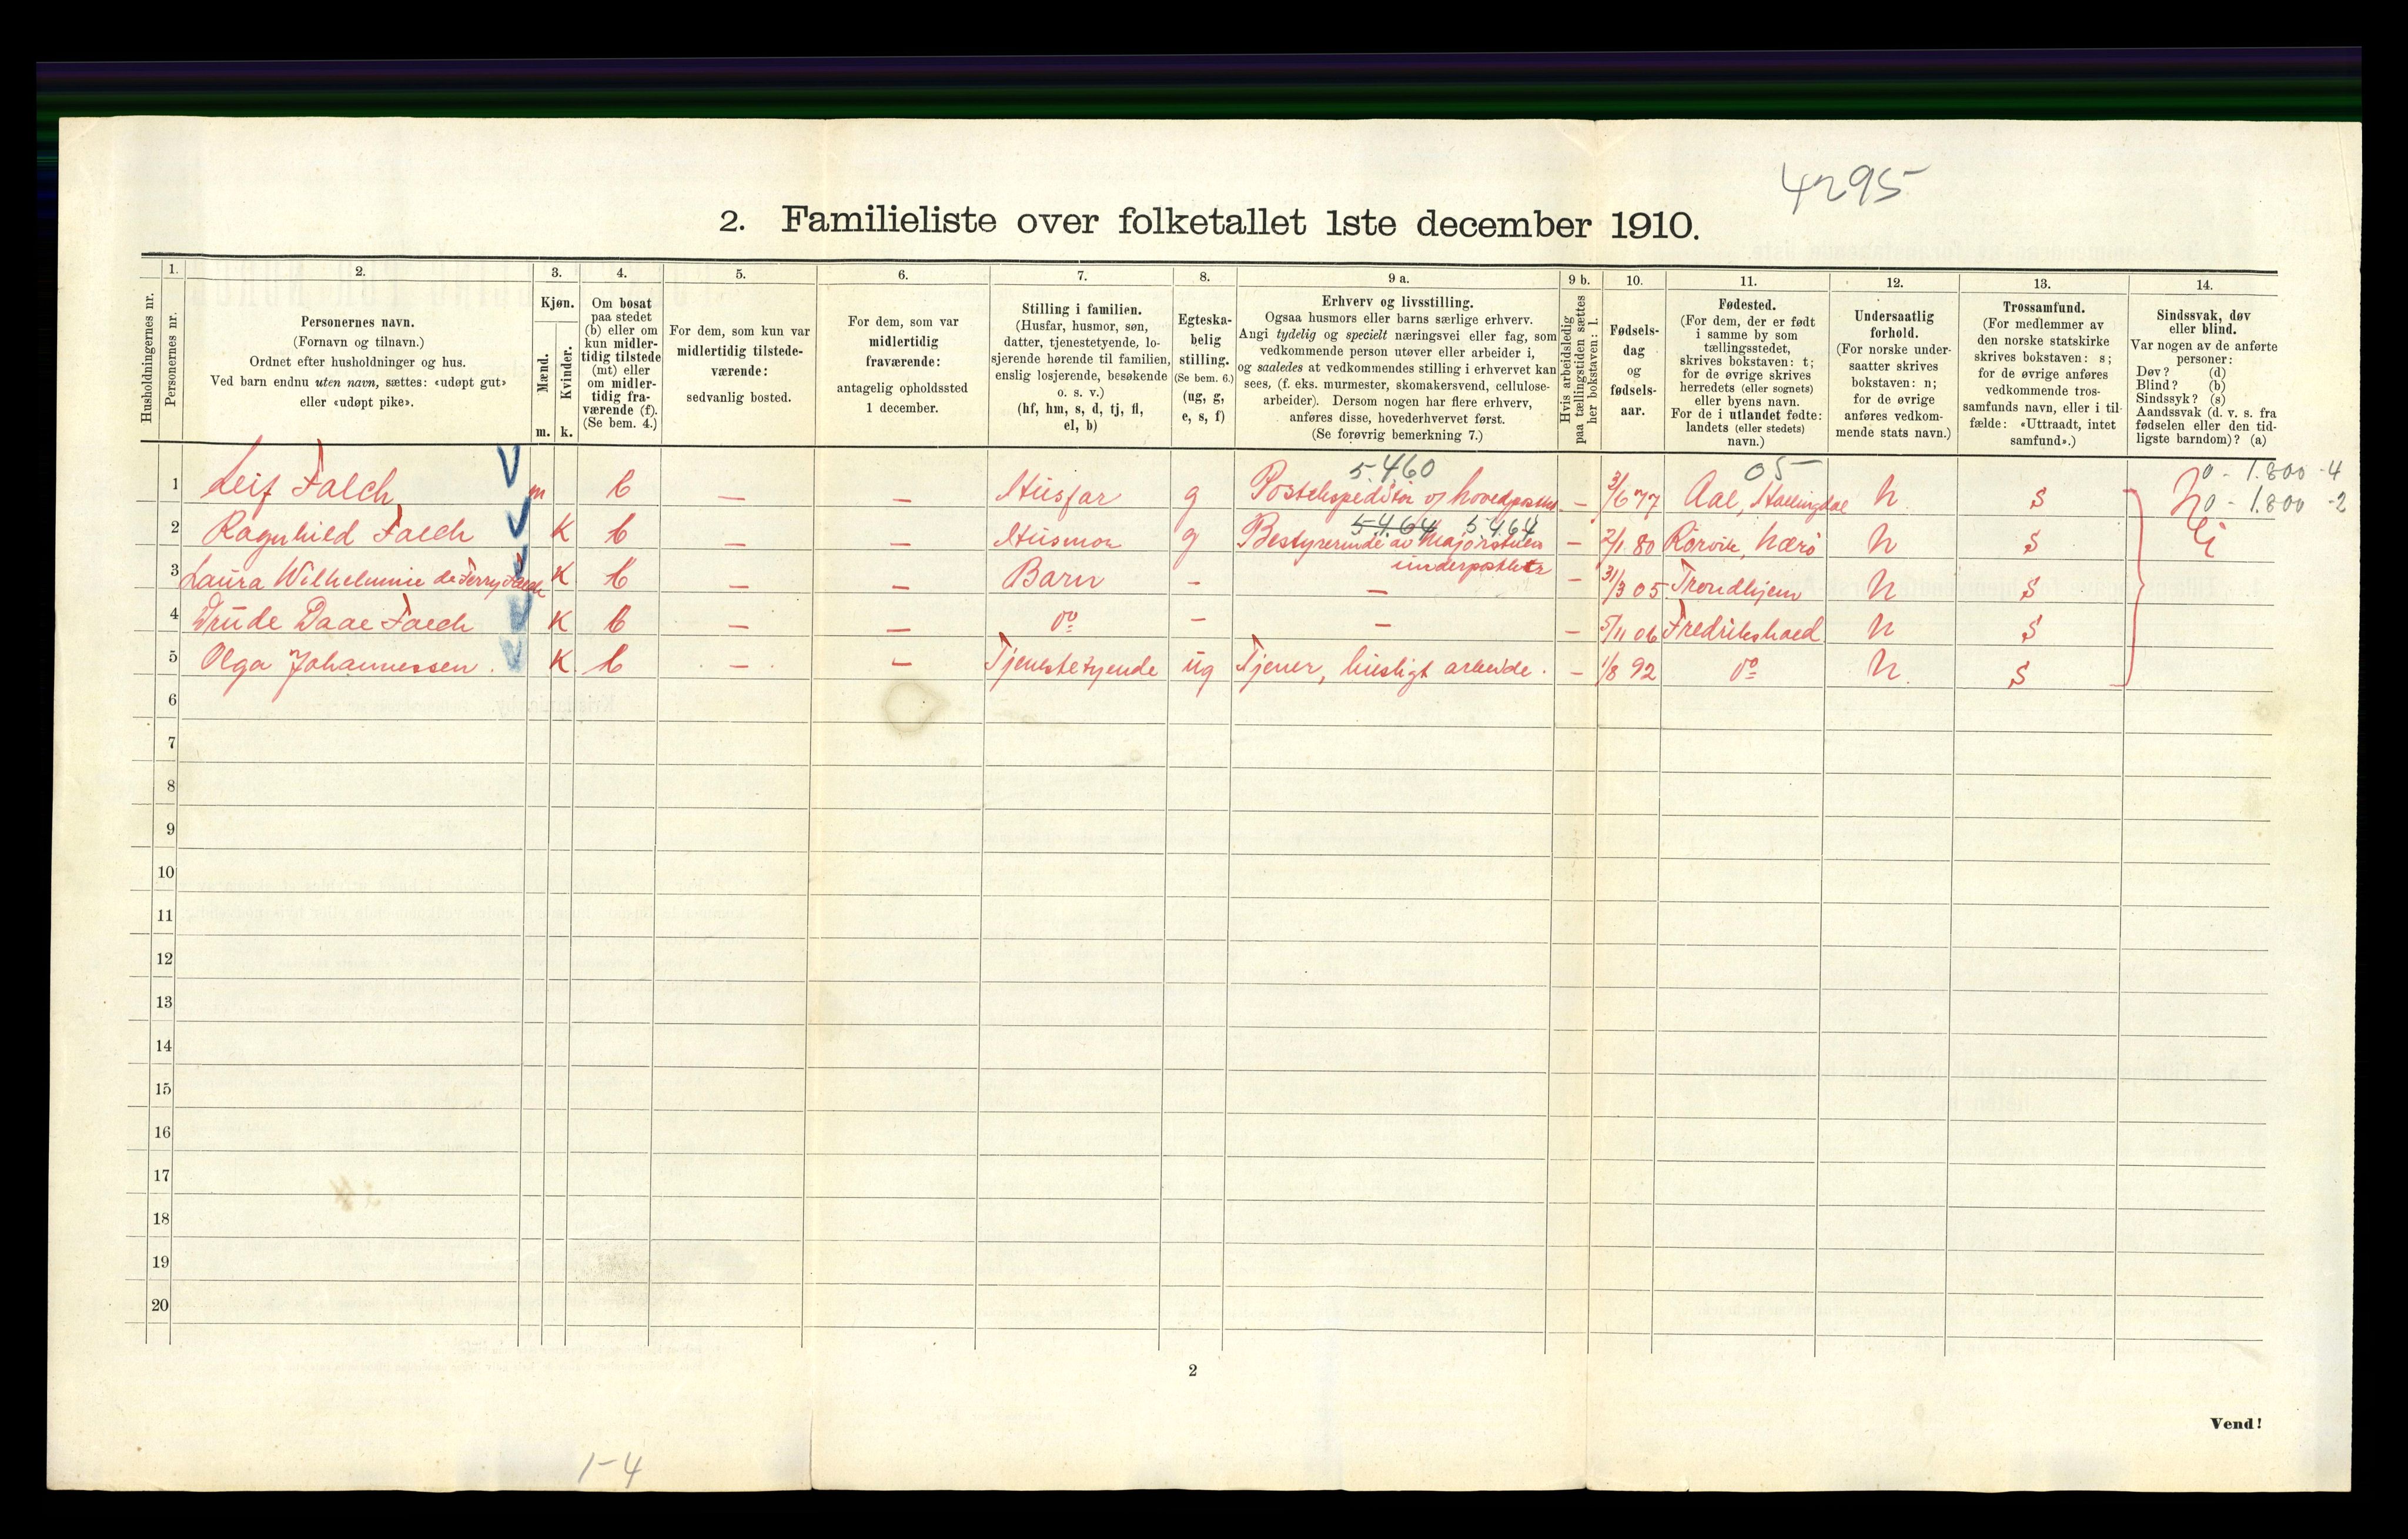 4295
2. Familieliste over folketallet 1ste december 1910.
Husholdningernes nr.
1. Personernes nr.
2. Personernes navn.
(Fornavn og tilnavn.)
Ordnet efter husholdninger og hus.
Ved barn endnu uten navn, sættes: «udøpt gut»
eller «udøpt pike».
3. Kjøn.
Mænd. m.
Kvinder. k.
4. Om bosat
paa stedet
(b) eller om
kun midler-
tidig tilstede
(mt) eller
om midler-
tidig fra-
værende (f).
(Se bem. 4.)
5. For dem, som kun var
midlertidig tilstede-
værende:
sedvanlig bosted.
6. For dem, som var
midlertidig
fraværende:
antagelig opholdssted
1 december.
7. Stilling i familien.
(Husfar, husmor, søn,
datter, tjenestetyende, lo-
sjerende hørende til familien,
enslig losjerende, besøkende
o. s. v.)
(hf, hm, s, d, tj, fl,
el, b)
8. Egteska-
belig
stilling.
(Se bem. 6.)
(ug, g,
e, s, f)
9 a. Erhverv og livsstilling.
Ogsaa husmors eller barns særlige erhverv.
Angi tydelig og specielt næringsvei eller fag, som
vedkommende person utøver eller arbeider i,
og saaledes at vedkommendes stilling i erhvervet kan
sees, (f. eks. murmester, skomakersvend, cellulose-
arbeider). Dersom nogen har flere erhverv,
anføres disse, hovederhvervet først.
(Se forøvrig bemerkning 7.)
9 b. Hvis arbeidsledig
paa tællingstiden sættes
her bokstaven: l.
10. Fødsels-
dag
og
fødsels-
aar.
11. Fødested.
(For dem, der er født
i samme by som
tællingsstedet,
skrives bokstaven: t;
for de øvrige skrives
herredets (eller sognets)
eller byens navn.
For de i utlandet fødte:
landets (eller stedets)
navn.)
12. Undersaatlig
forhold.
(For norske under-
saatter skrives
bokstaven: n;
for de øvrige
anføres vedkom-
mende stats navn.)
13. Trossamfund.
(For medlemmer av
den norske statskirke
skrives bokstaven: s;
for de øvrige anføres
vedkommende tros-
samfunds navn, eller i til-
fælde: «Uttraadt, intet
samfund».)
14. Sindssvak, døv
eller blind.
Var nogen av de anførte
personer:
Døv? (d)
Blind? (b)
Sindssyk? (s)
Aandssvak (d. v. s. fra
fødselen eller den tid-
ligste barndom)? (a)
5.460 05 0 - 1.800 -4
1 Leif Falch m b — — Husfar g Postekspeditør — 3/6 77 Aal, Hallingdal n s
5464 5464 0 - 1.800 -2
2 Ragnhild Falch K b — — Husmor g Bestyrerinde av Majorstuen — 2/1 80 Rörvik, Nærö n s Nei
underpostktr
3 Laura Wilhelmine de Ferry Falch K b — — Barn — — — 31/3 05 Trondhjem n s
4 Trude Daae Falch K b — — do — — — 5/11 06 Fredrikshald n s
5 Olga Johannessen. K b — — Tjenestetyende ug Tjener, husligt arbeide. — 1/8 92 do n s
6
7
8
9
10
11
12
13
14
15
16
17
18
19
20
2
Vend!
1-4